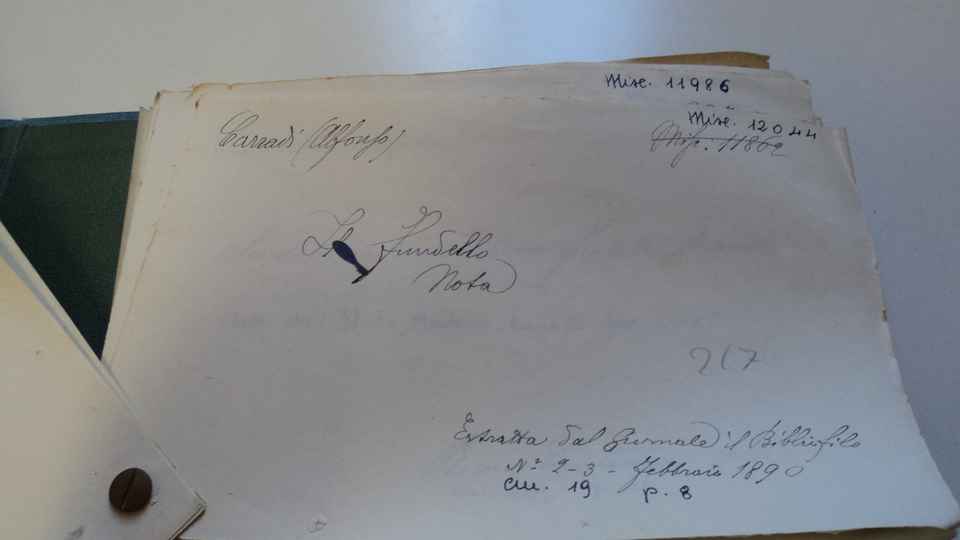 Misc. 11986
Misc. 12044
Corradi (Alfonso)
Misc. 11862
Il Fundello
Nota
217
Estratta dal Giornale il Bibliofilo
Nº 2-3 - febbraio 1890
cm. 19 p. 8